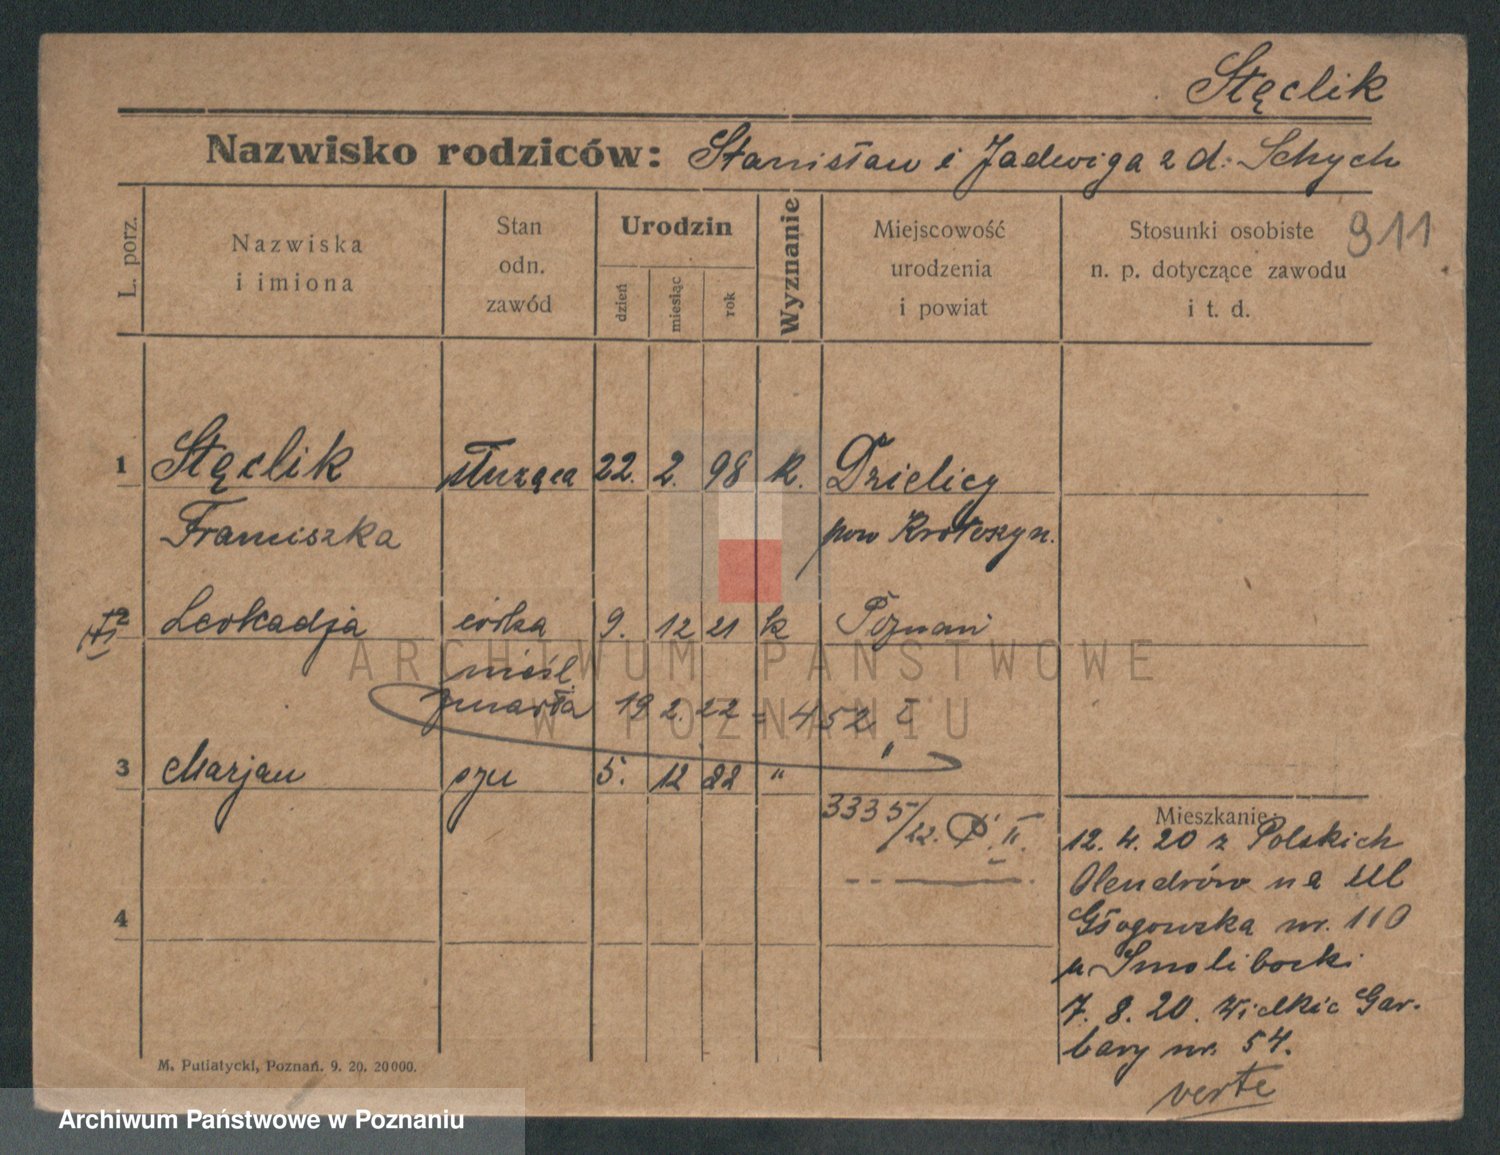 Stęclik
Nazwisko rodziców: Stanisław i Jadwiga z d. Schych
911
L. porz.
Nazwiska
i imiona
Stan
odn.
zawód
Urodzin
dzień
miesiąc
rok
Wyznanie
Miejscowość
urodzenia
i powiat
Stosunki osobiste
n. p. dotyczące zawodu
i t. d.
1 Stęclik służąca 22. 2. 98 k. Dzielicy
Franciszka pow Krotoszyn.
2 Leokadja córka 9. 12 21 k Poznań
nieśl.
zmarła 19 2. 22 = 452
3 Marjan syn 5. 12 22 " "
3335/22. II.
4
Mieszkanie:
12. 4. 20 z Polskich
Olendrów na ul
Głogowska nr. 110
u Smolibocki
7. 8. 20. Wielkie Gar-
bary nr. 54.
verte
M. Putiatycki, Poznań. 9. 20. 20000.
ARCHIWUM PAŃSTWOWE
W POZNANIU
Archiwum Państwowe w Poznaniu